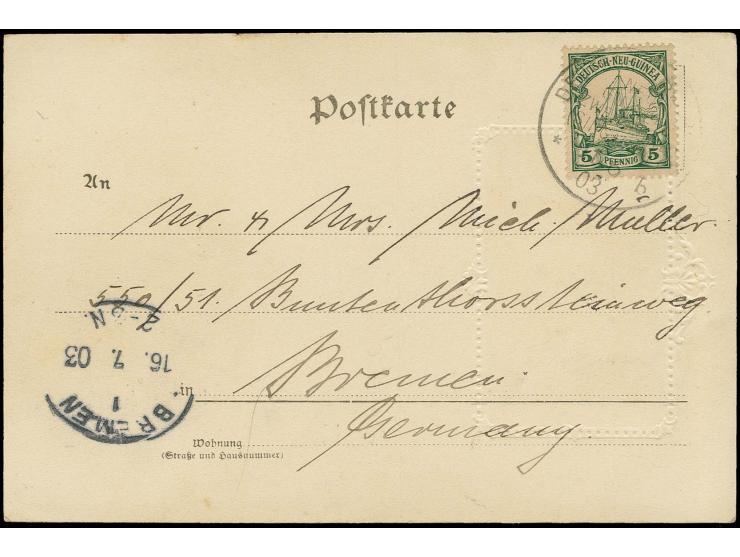 DEUTSCH-NEU-GUINEA
5 PFENNIG 5
03
Postkarte
An
Mr. & Mrs. Mich. Muller.
550/51. Buntenthorssteinweg.
in Bremen.
Germany.
Wohnung
(Straße und Hausnummer)
BREMEN
1
16. 7. 03
2-3 N